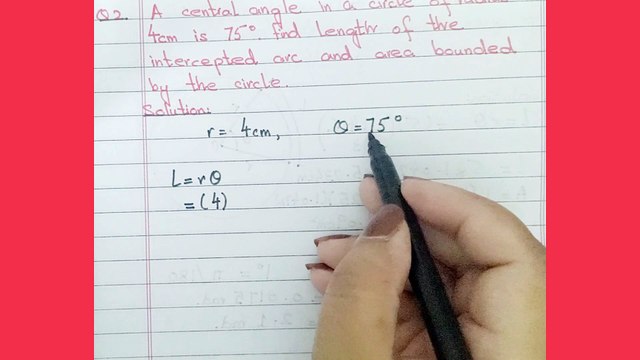 Q2. A central angle in a circle of radius
4cm is 75° find length of the
intercepted arc and area bounded
by the circle.
Solution:
r = 4cm, θ = 75°
L = rθ
= (4)